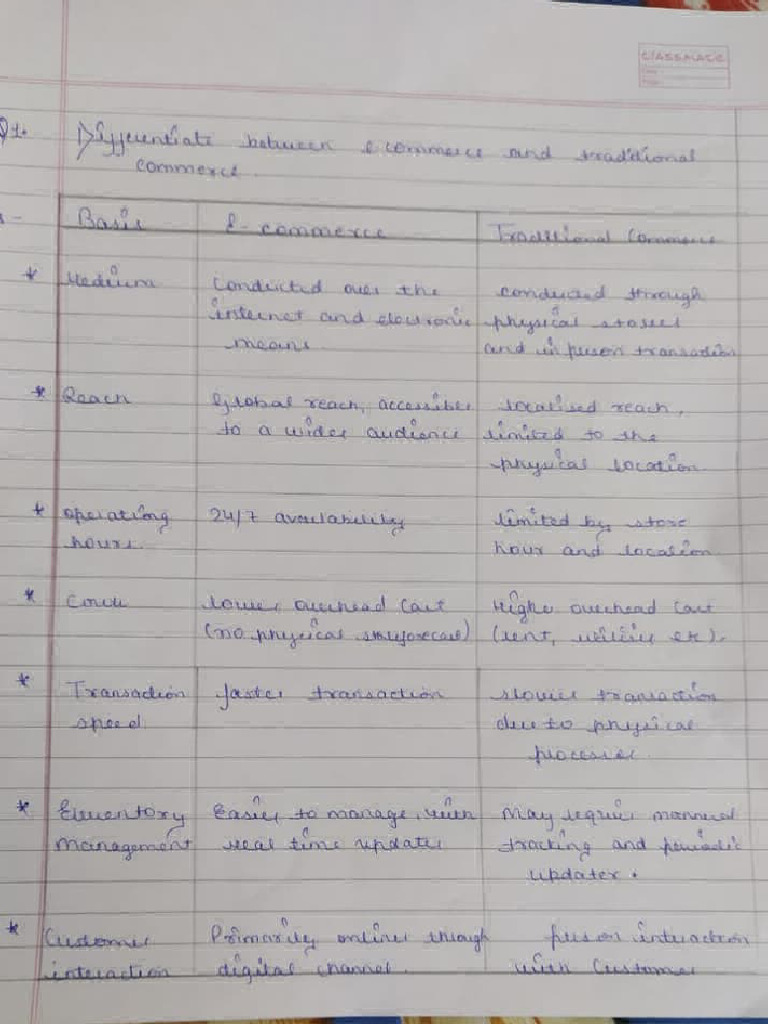 classmate
Date
Page
Q1. Differentiate between e commerce and traditional
commerce.
Basis E-commerce Traditional Commerce
* Medium conducted over the conducted through
internet and electronic physical stores
means. and in person transaction
* Reach Global reach, accessible localised reach,
to a wider audience limited to the
physical location
* operationg 24/7 availability limited by store
hours. hour and location
* lower overhead Cost Higher overhead cost
(no physical (rent, utilities etc).
* Transaction faster transaction slower transaction
speed due to physical
processes.
* Easier to manage with May require
management real time updates tracking and periodic
updates.
* Customer Primarily online through person interaction
interaction digital channel. with Customer